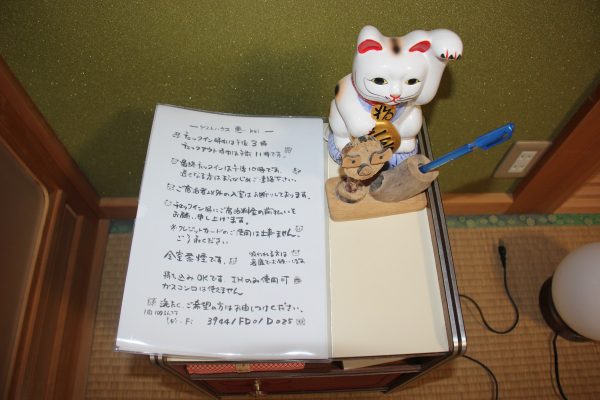 ゲストハウス 恵 kei
チェックイン時間は午後3時
チェックアウト時間は午前11時です。
最終チェックインは午後10時です。
遅くなる方はあらかじめご連絡下さい。
ご宿泊者以外の入室はお断りしております。
チェックイン時にご宿泊料金の前払いを
お願い申し上げます。
※クレジットカードのご使用は出来ません。
ご了承ください
全室禁煙です。
持ち込みOKです。IHのみ使用可
ガスコンロは使えません
洗たく、ご希望の方はお申しつけください。
Wi-Fi 3944/FD01D025